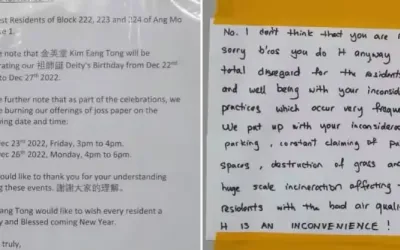 st Residents of Block 222, 223 and 224 of Ang Mo
e 1.
e note that 金英堂 Kim Eang Tong will be
rating our 祖師誕 Deity's Birthday from Dec 22nd
to Dec 27th 2022.
e further note that as part of the celebrations, we
be burning our offerings of joss paper on the
wing date and time:
Dec 23rd 2022, Friday, 3pm to 4pm.
Dec 26th 2022, Monday, 4pm to 6pm.
ould like to thank you for your understanding
ng these events. 謝謝大家的理解.
ang Tong would like to wish every resident a
y and Blessed coming New Year.
truly,
No. I don't think that you are
sorry b'cos you do it anyway
total disregard for the residents
and well being with your inconside
practices which occur very freque
We put up with your inconsidera
parking, constant claiming of pa
spaces, destruction of grass an
huge scale incineration affecting t
residents with the bad air quali
IT IS AN INCONVENIENCE!